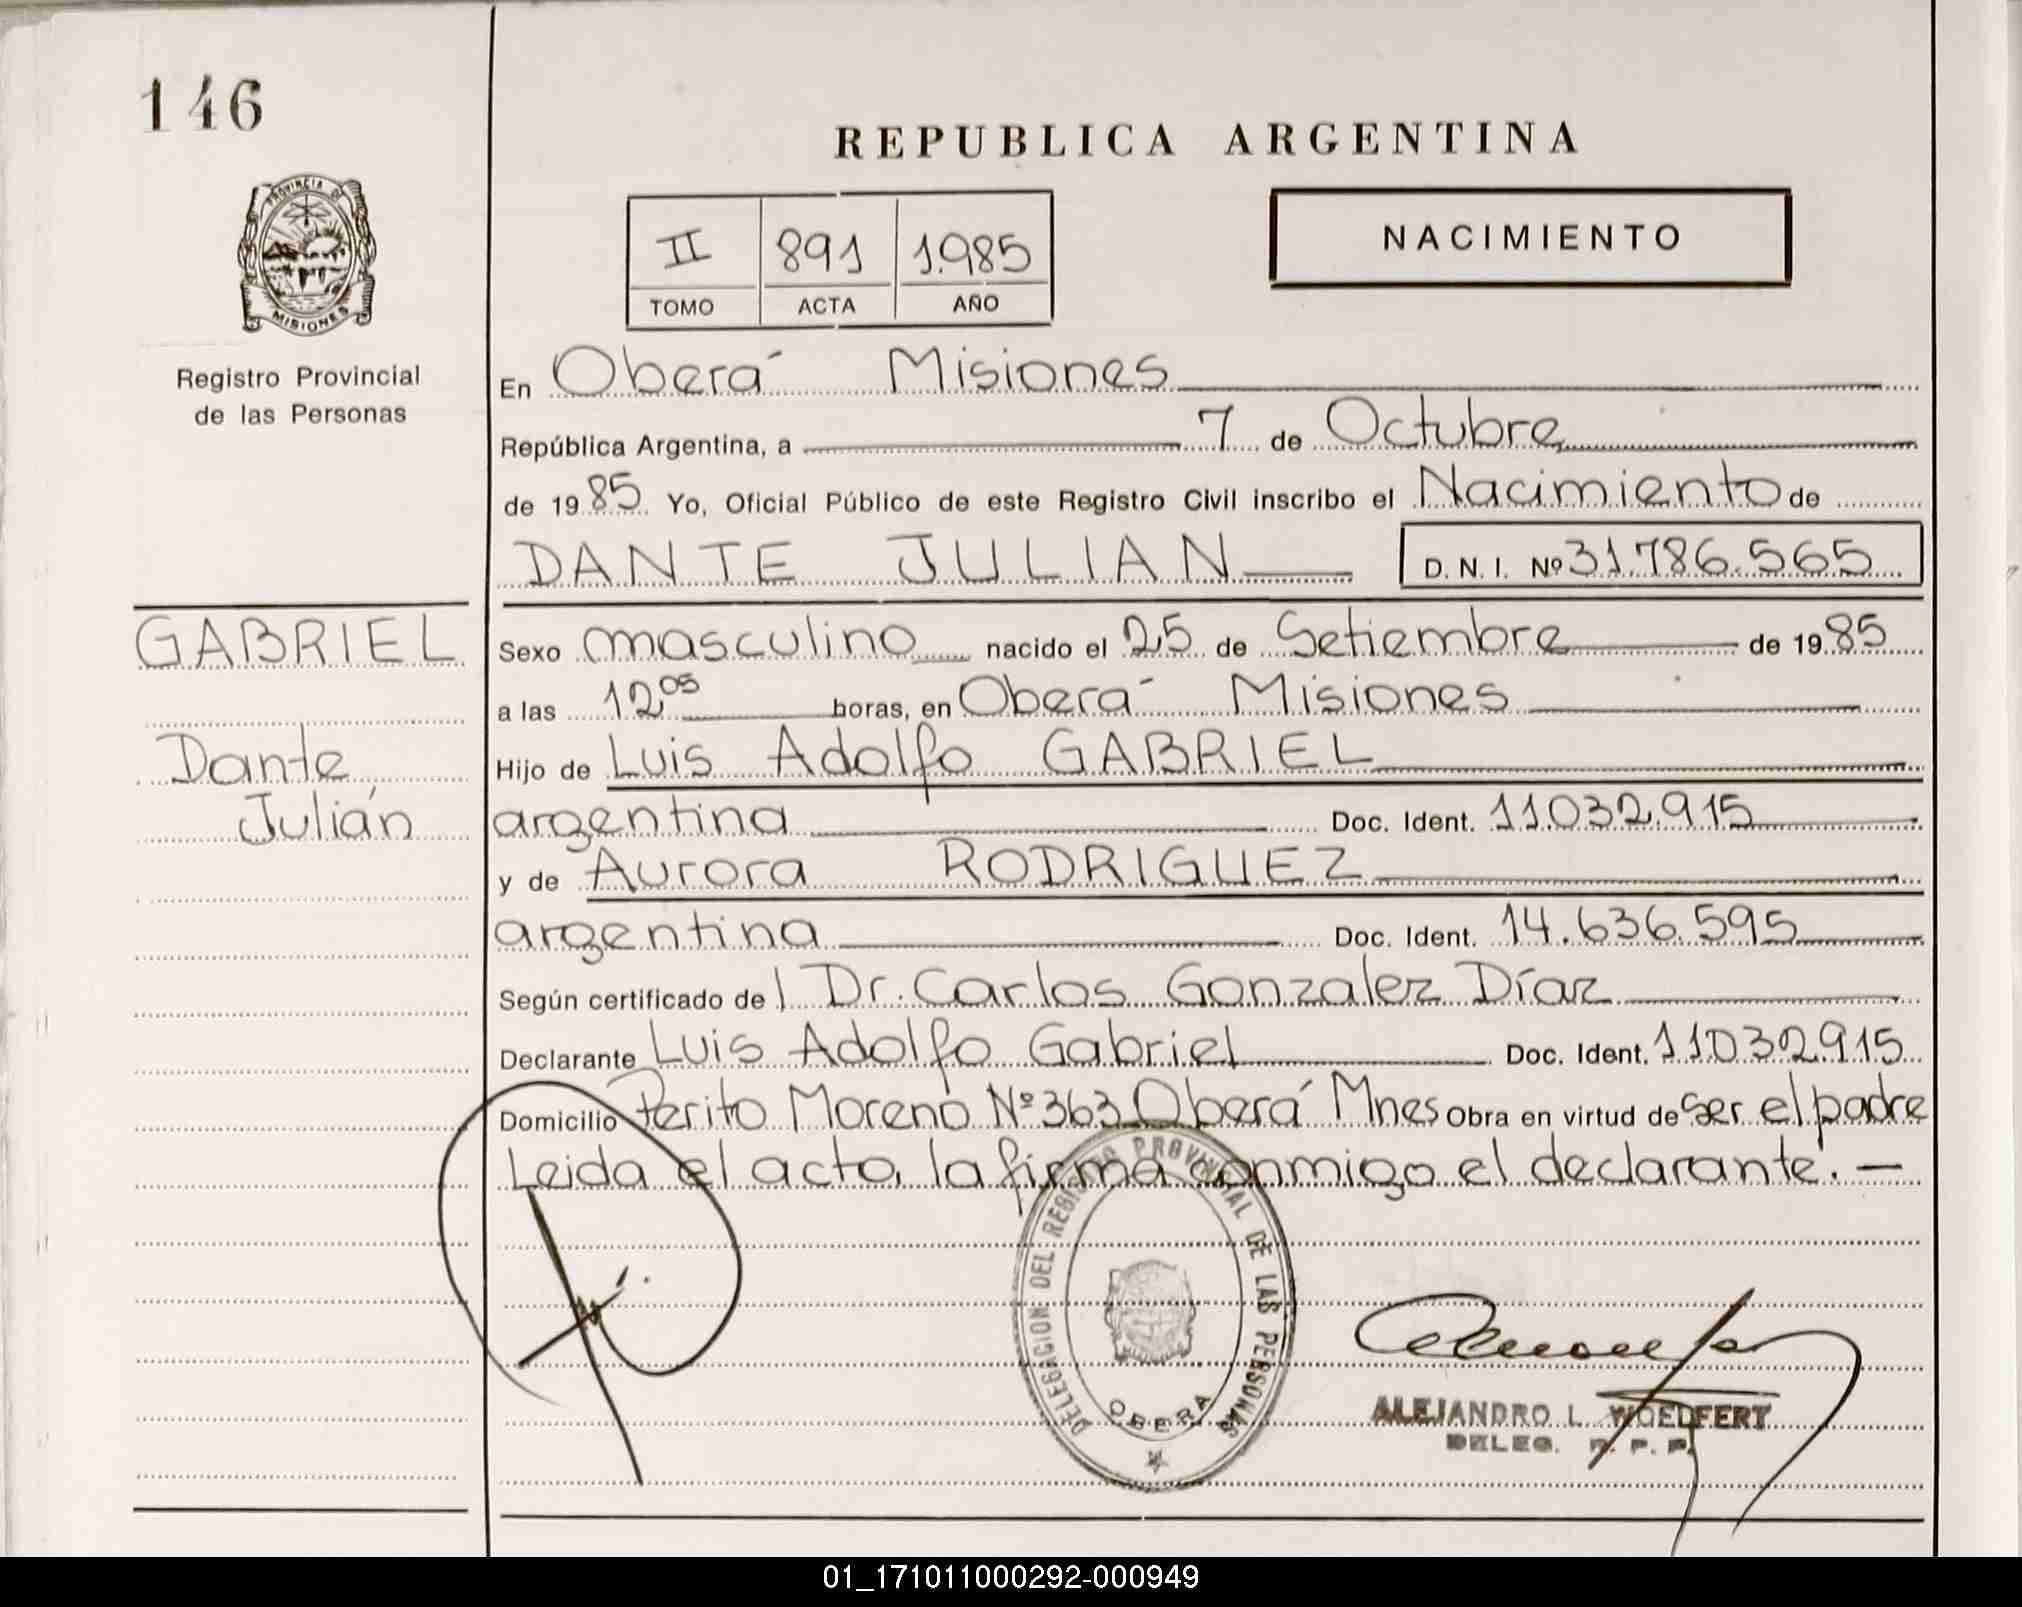 146
REPUBLICA ARGENTINA
PROVINCIA DE
MISIONES
Registro Provincial
de las Personas
II 891 1.985
TOMO ACTA AÑO
NACIMIENTO
En Oberá Misiones
República Argentina, a 7 de Octubre
de 1985 Yo, Oficial Público de este Registro Civil inscribo el Nacimiento de
DANTE JULIAN D.N.I. Nº 31.786.565
GABRIEL
Dante
Julián
Sexo masculino nacido el 25 de Setiembre de 1985
a las 12 05 horas, en Oberá Misiones
Hijo de Luis Adolfo GABRIEL
argentina Doc. Ident. 11.032.915
y de Aurora RODRIGUEZ
argentina Doc. Ident. 14.636.595
Según certificado del Dr. Carlos Gonzalez Díaz
Declarante Luis Adolfo Gabriel Doc. Ident. 11.032.915
Domicilio Perito Moreno Nº 363 Oberá Mnes Obra en virtud de ser el padre
Leida el acta, la firma conmigo el declarante.—
DELEGACION DEL REGISTRO PROVINCIAL DE LAS PERSONAS
OBERA
ALEJANDRO L. WOELFERT
DELEG. R. P. P.
01_171011000292-000949